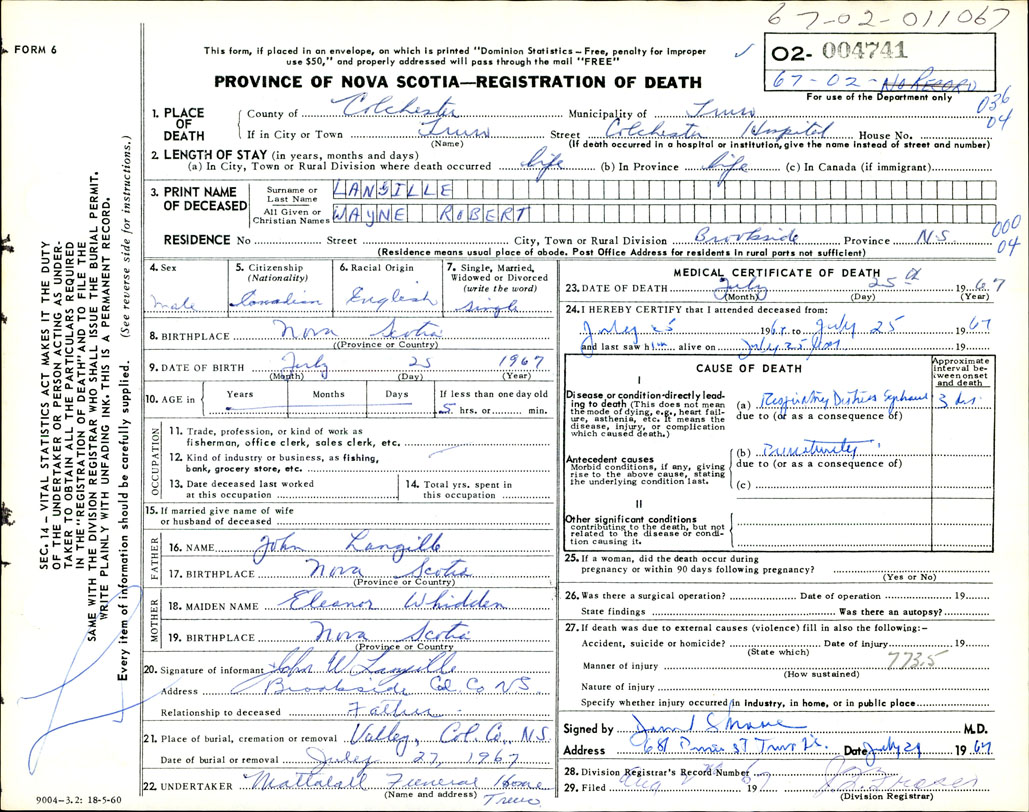 67-02-011067
FORM 6
This form, if placed in an envelope, on which is printed "Dominion Statistics – Free, penalty for improper
use $50," and properly addressed will pass through the mail "FREE"
02- 004741
67-02- No RECORD
For use of the Department only
036
04
PROVINCE OF NOVA SCOTIA—REGISTRATION OF DEATH
1. PLACE OF DEATH
County of Colchester Municipality of Truro
If in City or Town Truro Street Colchester Hospital House No.
(Name) (If death occurred in a hospital or institution, give the name instead of street and number)
2. LENGTH OF STAY (in years, months and days)
(a) In City, Town or Rural Division where death occurred life (b) In Province life (c) In Canada (if immigrant)
3. PRINT NAME OF DECEASED
Surname or Last Name LANGILLE
All Given or Christian Names WAYNE ROBERT
000
04
RESIDENCE No Street City, Town or Rural Division Brookside Province N.S.
(Residence means usual place of abode. Post Office Address for residents in rural parts not sufficient)
4. Sex male
5. Citizenship (Nationality) Canadian
6. Racial Origin English
7. Single, Married, Widowed or Divorced (write the word) single
8. BIRTHPLACE Nova Scotia
((Province or Country)
9. DATE OF BIRTH July 25 1967
(Month) (Day) (Year)
10. AGE in Years Months Days If less than one day old
5 hrs. or min.
OCCUPATION
11. Trade, profession, or kind of work as
fisherman, office clerk, sales clerk, etc.
12. Kind of industry or business, as fishing,
bank, grocery store, etc.
13. Date deceased last worked
at this occupation
14. Total yrs. spent in
this occupation
15. If married give name of wife
or husband of deceased
FATHER
16. NAME John Langille
17. BIRTHPLACE Nova Scotia
(Province or Country)
MOTHER
18. MAIDEN NAME Eleanor Whidden
19. BIRTHPLACE Nova Scotia
(Province or Country
20. Signature of informant John W Langille
Address Brookside Col. Co NS
Relationship to deceased Father
21. Place of burial, cremation or removal Valley, Col. Co., N.S.
Date of burial or removal July 27, 1967
22. UNDERTAKER Mattatall Funeral Home
(Name and address) Truro
MEDICAL CERTIFICATE OF DEATH
23. DATE OF DEATH July 25th 1967
(Month) (Day) (Year)
24. I HEREBY CERTIFY that I attended deceased from:
July 25 1967 to July 25 1967
and last saw him alive on July 25 19
CAUSE OF DEATH
Approximate interval between onset and death
I
Disease or condition directly leading to death (This does not mean
the mode of dying, e.g., heart failure, asthenia, etc. It means the
disease, injury, or complication
which caused death.)
(a) Respiratory Distress Syndrome 3 hrs.
due to (or as a consequence of)
Antecedent causes
Morbid conditions, if any, giving
rise to the above cause, stating
the underlying condition last.
(b) Prematurity
due to (or as a consequence of)
(c)
II
Other significant conditions
contributing to the death, but not
related to the disease or condition causing it.
25. If a woman, did the death occur during
pregnancy or within 90 days following pregnancy?
(Yes or No)
26. Was there a surgical operation? Date of operation 19
State findings Was there an autopsy?
27. If death was due to external causes (violence) fill in also the following:–
Accident, suicide or homicide? Date of injury 19
(State which)
773.5
Manner of injury
(How sustained)
Nature of injury
Specify whether injury occurred in industry, in home, or in public place
Signed by M.D.
Address 68 St Truro Date July 29 1967
28. Division Registrar's Record Number
29. Filed Aug 1967
(Division Registrar)
SEC. 14 – VITAL STATISTICS ACT MAKES IT THE DUTY
OF THE UNDERTAKER OR PERSON ACTING AS UNDERTAKER TO OBTAIN ALL THE PARTICULARS REQUIRED
IN THE "REGISTRATION OF DEATH" AND TO FILE THE
SAME WITH THE DIVISION REGISTRAR WHO SHALL ISSUE THE BURIAL PERMIT.
WRITE PLAINLY WITH UNFADING INK. THIS IS A PERMANENT RECORD.
Every item of information should be carefully supplied. (See reverse side for instructions.)
9004–3.2: 18-5-60